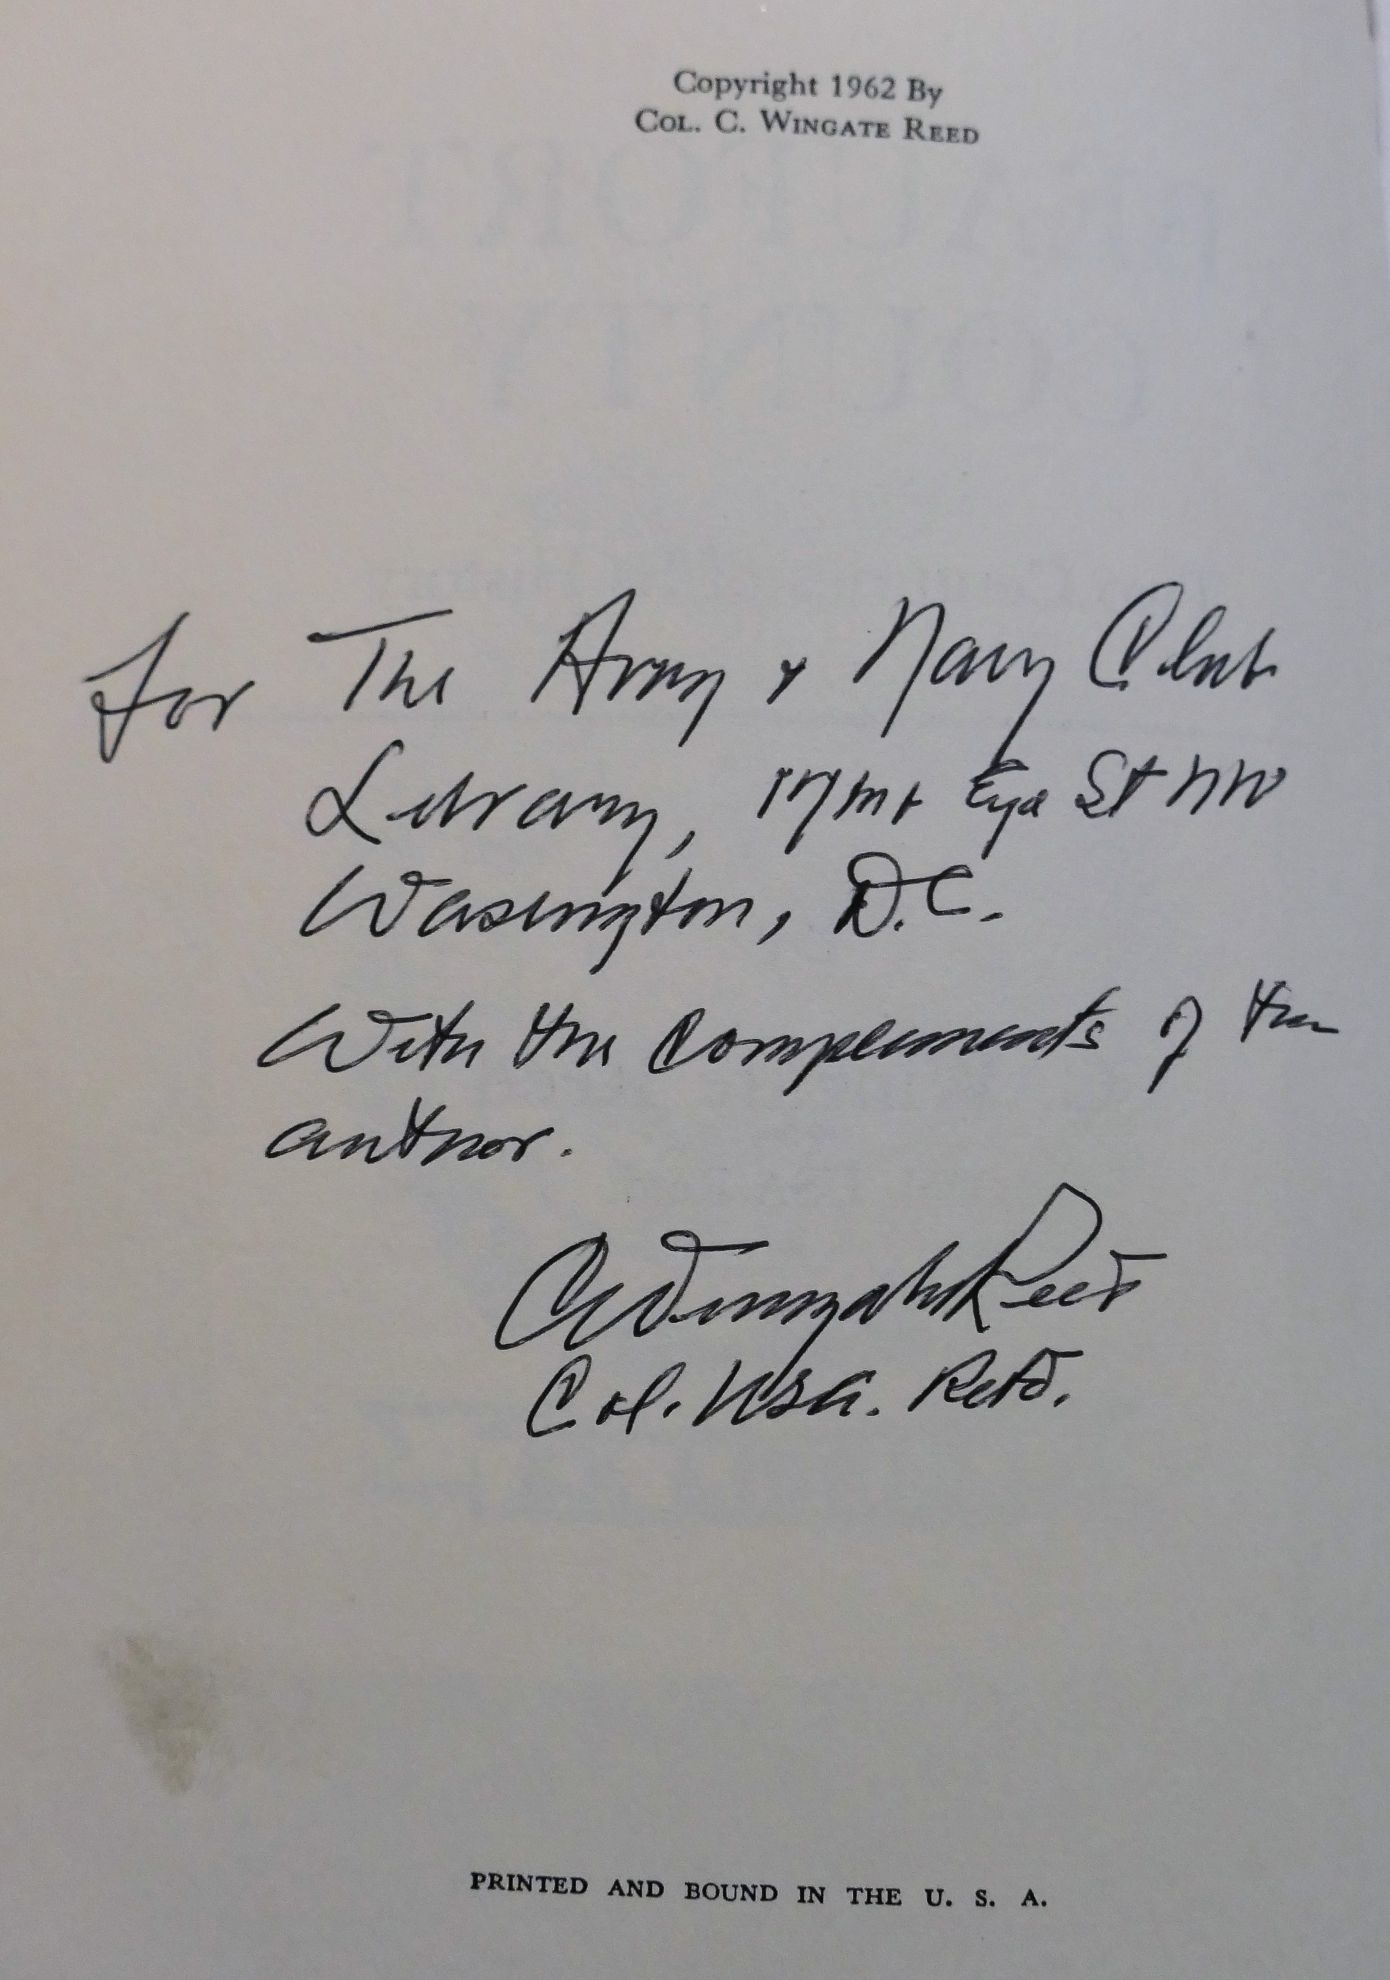 Copyright 1962 By
COL. C. WINGATE REED
For The Army & Navy Club
Library, 17th & Eye St NW
Wasington, D.C.
With the Complements of the
author.
CWingate Reed
Col. USA. Retd.
PRINTED AND BOUND IN THE U. S. A.